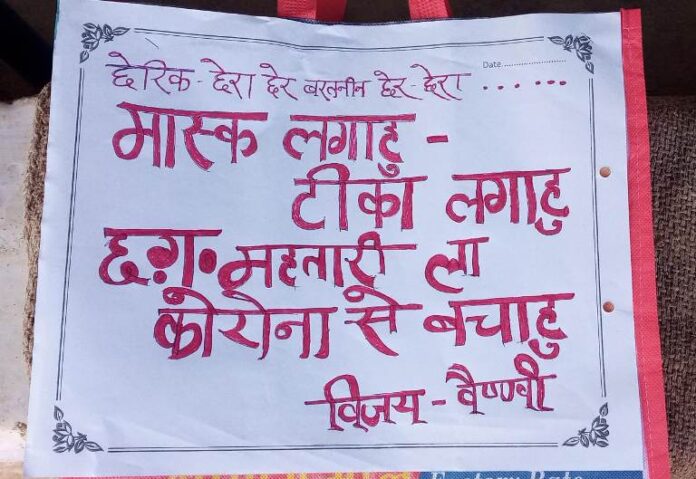 Date....................
छेरिक-छेरा छेर बरतनीन छेर-छेरा ......
मास्क लगाहु -
टीका लगाहु
छग़. महतारी ला
कोरोना से बचाहु
विजय - वैष्णवी